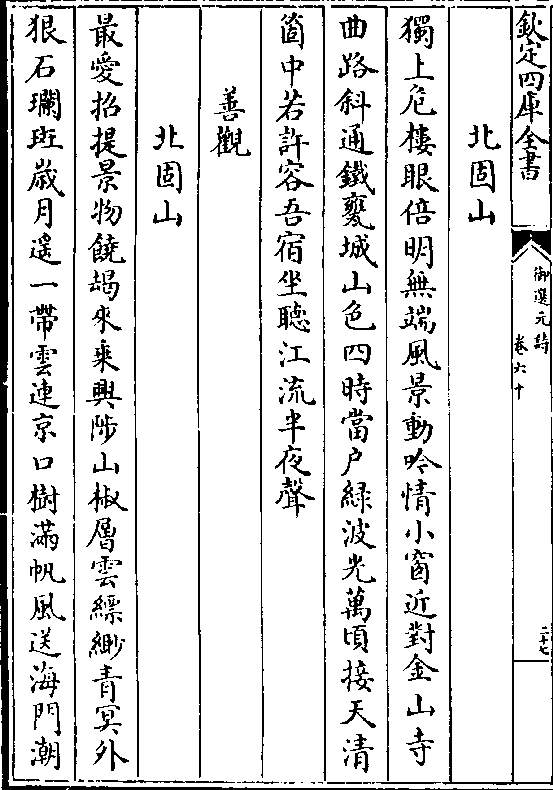 欽定四庫全書
御選元詩
卷六十
二十七
北固山
獨上危樓眼倍明無端風景動吟情小窗近對金山寺
曲路斜通鐵甕城山色四時當户緑波光萬頃接天清
箇中若許容吾宿坐聽江流半夜聲
善觀
北固山
最愛招提景物饒朅來乗興陟山椒層雲縹緲青冥外
狠石斕斑歲月遙一帶雲連京口樹滿帆風送海門潮